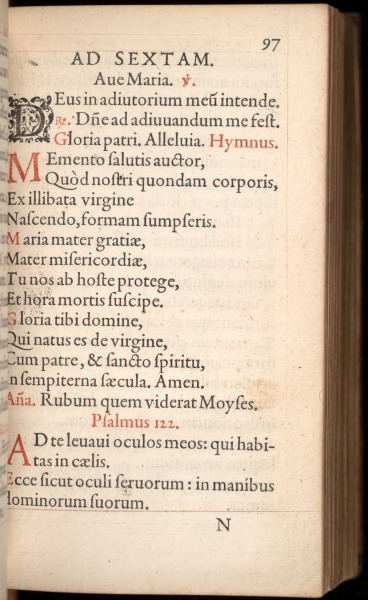 97
AD SEXTAM.
Aue Maria. ℣.
DEus in adiutorium meũ intende.
℞. Dñe ad adiuuandum me feſt.
Gloria patri. Alleluia. Hymnus.
MEmento ſalutis auctor,
Quòd noſtri quondam corporis,
Ex illibata virgine
Naſcendo, formam ſumpſeris.
Maria mater gratiæ,
Mater miſericordiæ,
Tu nos ab hoſte protege,
Et hora mortis ſuſcipe.
Gloria tibi domine,
Qui natus es de virgine,
Cum patre, & ſancto ſpiritu,
In ſempiterna ſæcula. Amen.
Aña. Rubum quem viderat Moyſes.
Pſalmus 122.
AD te leuaui oculos meos: qui habi-
tas in cælis.
Ecce ſicut oculi ſeruorum: in manibus
dominorum ſuorum.
N